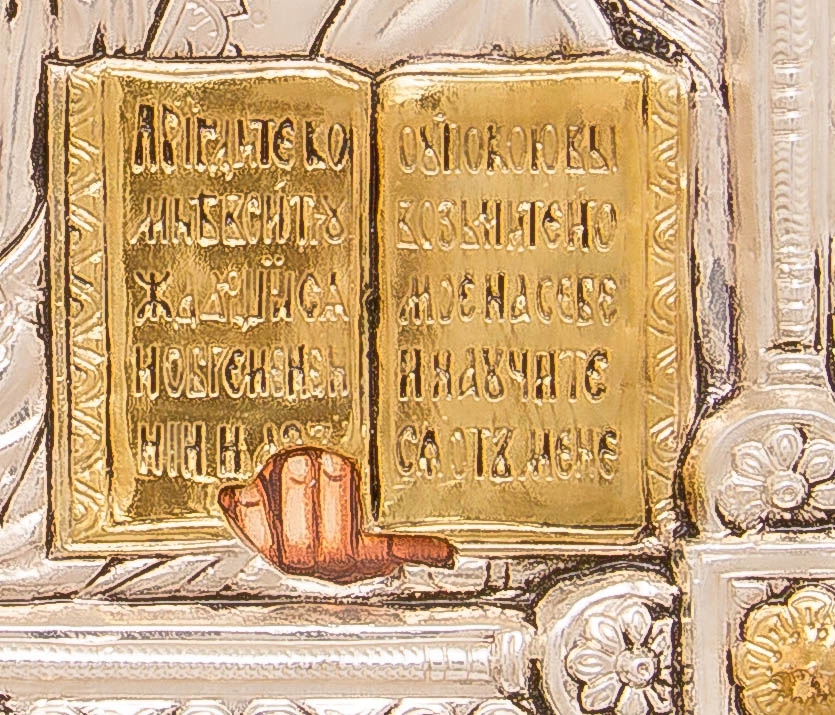 ПРІИДИТЕ КО
МНѢ ВСИ ТРꙋ
ЖДАЮЩІИСѦ
И ОБРЕМЕНЕН
НІИ И АЗЪ
ОУПОКОЮ ВЫ
ВОЗЬМИТЕ ИГО
МОЕ НА СЕБЕ
И НАУЧИТЕ
СѦ ОТЪ МЕНЕ